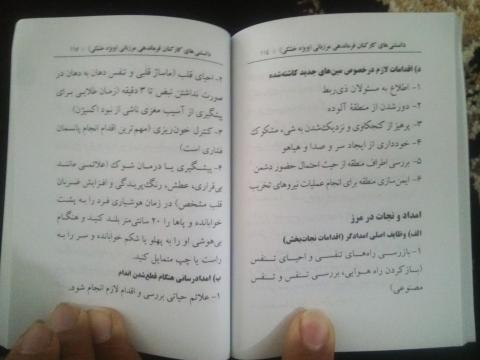 دانستنی‌های کارکنان فرماندهی مرزبانی (ویژه خشکی)
د) اقدامات لازم در خصوص مین‌های جدید کاشته‌شده
۱- اطلاع به مسئولان ذی‌ربط
۲- دورشدن از منطقهٔ آلوده
۳- پرهیز از کنجکاوی و نزدیک‌شدن به شیء مشکوک
۴- خودداری از ایجاد سر و صدا و هیاهو
۵- بررسی اطراف منطقه از حیث احتمال حضور دشمن
۶- ایمن‌سازی منطقه برای انجام عملیات نیروهای تخریب
امداد و نجات در مرز
الف) وظایف اصلی امدادگر (اقدامات نجات‌بخش)
۱- بازرسی راه‌های تنفسی و احیای تنفس
(بازکردن راه هوایی، بررسی تنفس و تنفس
مصنوعی)
دانستنی‌های کارکنان فرماندهی مرزبانی (ویژه خشکی)
۲- احیای قلب (ماساژ قلبی و تنفس دهان به دهان در
صورت نداشتن نبض تا ۳ دقیقه (زمان طلایی برای
پیشگیری از آسیب مغزی ناشی از نبود اکسیژن)
۳- کنترل خون‌ریزی (مهم‌ترین اقدام انجام پانسمان
فشاری است)
۴- پیشگیری یا درمان شوک (علائمی مانند
بی‌قراری، عطش، رنگ‌پریدگی و افزایش ضربان
قلب مشخص) در زمان هوشیاری فرد را به پشت
خوابانده و پاها را ۲۰ سانتی‌متر بلند کنید و هنگام
بی‌هوشی او را به پهلو یا شکم خوابانده و سر را به
راست یا چپ متمایل کنید.
ب) امدادرسانی هنگام قطع‌شدن اندام
۱- علائم حیاتی بررسی و اقدام لازم انجام شود.